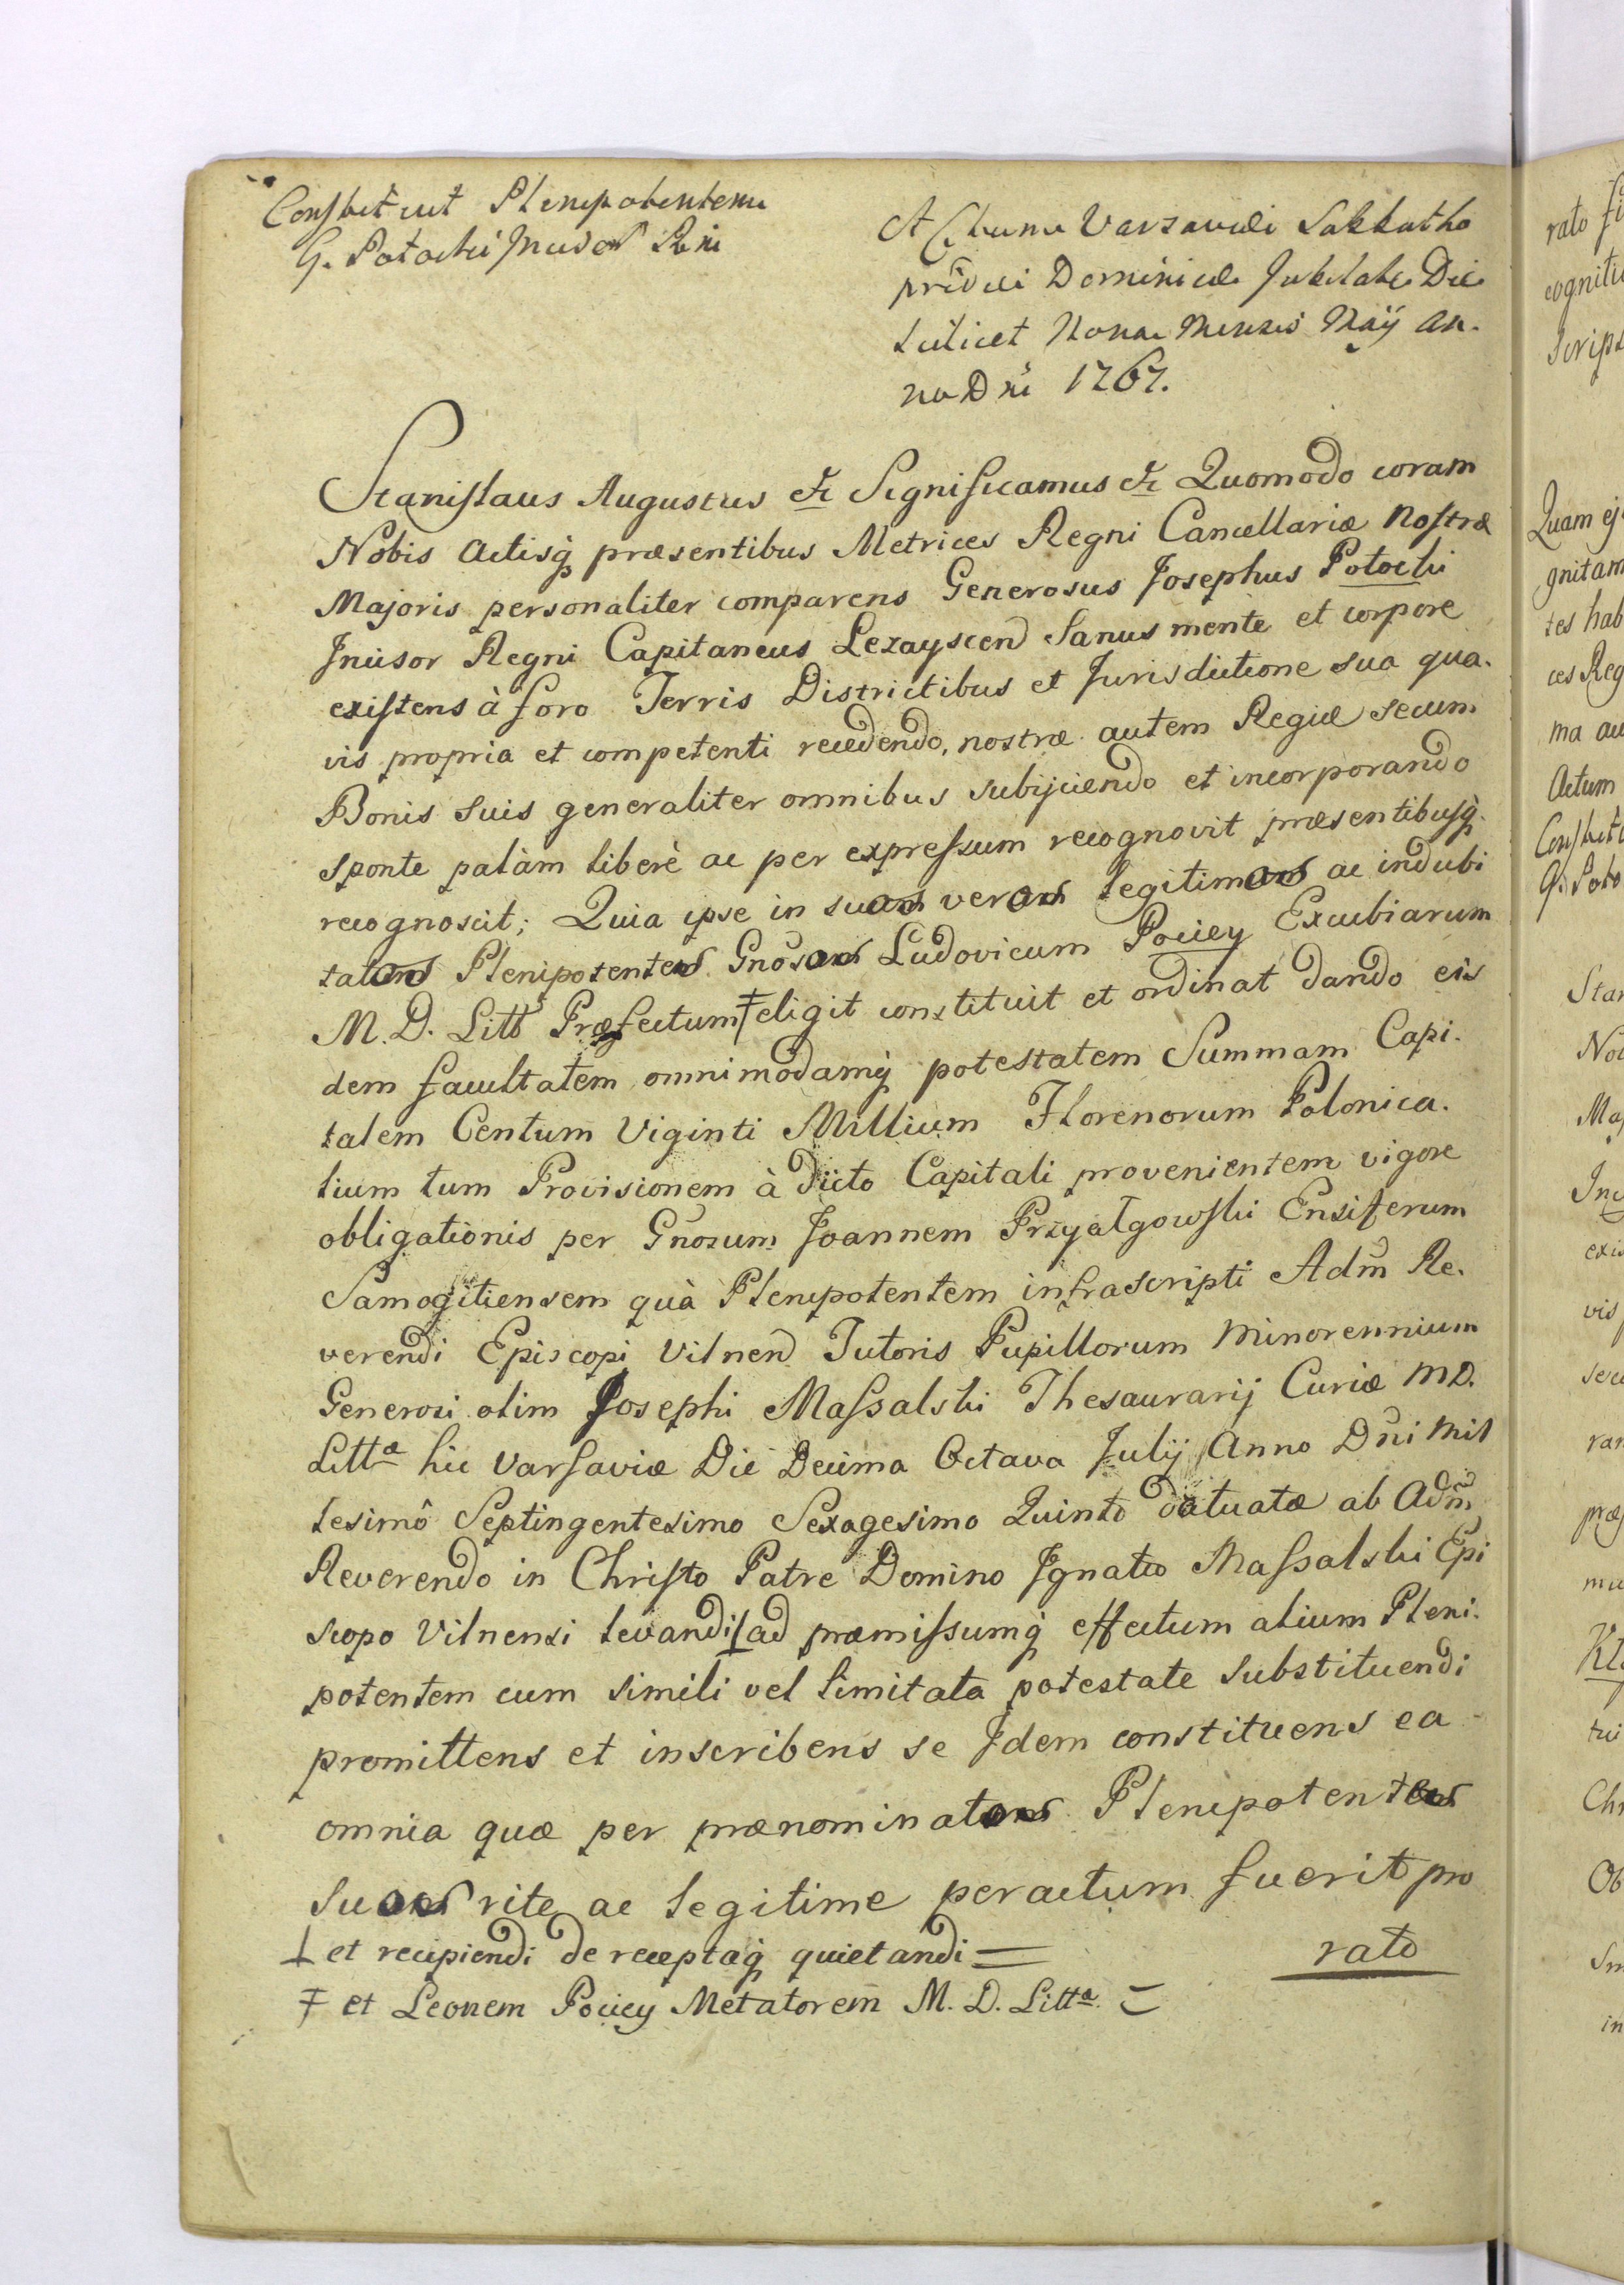 Constituit Plenipotentem
G. Potocki Incisor Rni
Actum Varsaviæ Sabbatho
pridie Dominicæ Jubilate Die
scilicet Nona Mensis Maij an-
no Dni 1767.
Stanislaus Augustus etc Significamus etc Quomodo coram
Nobis Actisq præsentibus Metrices Regni Cancellariæ Nostræ
Majoris personaliter comparens Generosus Josephus Potocki
Incisor Regni Capitaneus Lezayscen Sanus mente et corpore
existens à foro Terris Districtibus et Jurisdictione sua qua-
vis propria et competenti recedendo, nostræ autem Regiæ secum
Bonis suis generaliter omnibus subijciendo et incorporando
sponte palàm liberè ac per expressum recognovit præsentibusq
recognoscit; Quia ipse in suos veros legitimos ac indubi
tatos Plenipotentes Gnosos Ludovicum Pociey Excubiarum
M. D. Litt Præfectum ‡ eligit constituit et ordinat dando eis
dem facultatem omnimodamq potestatem Summam Capi-
talem Centum Viginti Millium Florenorum Polonica-
lium tum Provisionem à dicto Capitali provenientem vigore
obligationis per Gnosum Joannem Przyałgowski Ensiferum
Samogitiensem quà Plenipotentem infrascripti Adm Re-
verendi Episcopi Vilnen Tutoris Pupillorum Minorennium
Generosi olim Josephi Massalski Thesaurarij Curiæ M D.
Litta hic Varsaviæ Die Decima Octava Julij Anno Dni Mil
lesimô Septingentesimo Sexagesimo Quinto datuatæ ab Adm
Reverendo in Christo Patre Domino Ignatio Massalski Epi
scopo Vilnensi levandi ⊥ ad præmissumq effectum alium Pleni-
potentem cum simili vel limitata potestate substituendi
promittens et inscribens se Idem constituens ea
omnia quæ per prænominatos Plenipotentes
suos rite ac legitime peractum fuerit pro
⊥ et recipiendi de receptaq quietandi =
rato
‡ et Leonem Pociey Metatorem M. D. Litta =
rato fi
cognitio
Scrips
Quam ej
gnitam
tes hab
ces Reg
ma au
Actum
Constit
G. Poto
Stan
No
Maj
Inc
exis
vis
secu
ran
præ
mu
Kl
tui
Chr
Ob
Sm
in